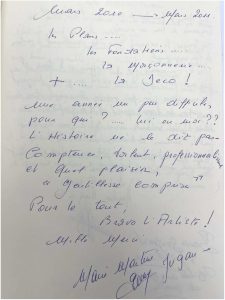 Mars 2010 → Mars 2011
Les Plans ....
Les Fondations ....
La Maçonnerie ....
+ .... La Deco !
Une année un peu difficile,
pour qui ? .... lui ou moi ??
L'Histoire ne le dit pas
Compétence, talent, professionnalisme
et quel plaisir,
"gentillesse comprise"
Pour le tout,
Bravo l'Artiste !
Mille Merci
Marie Martine
Jugan